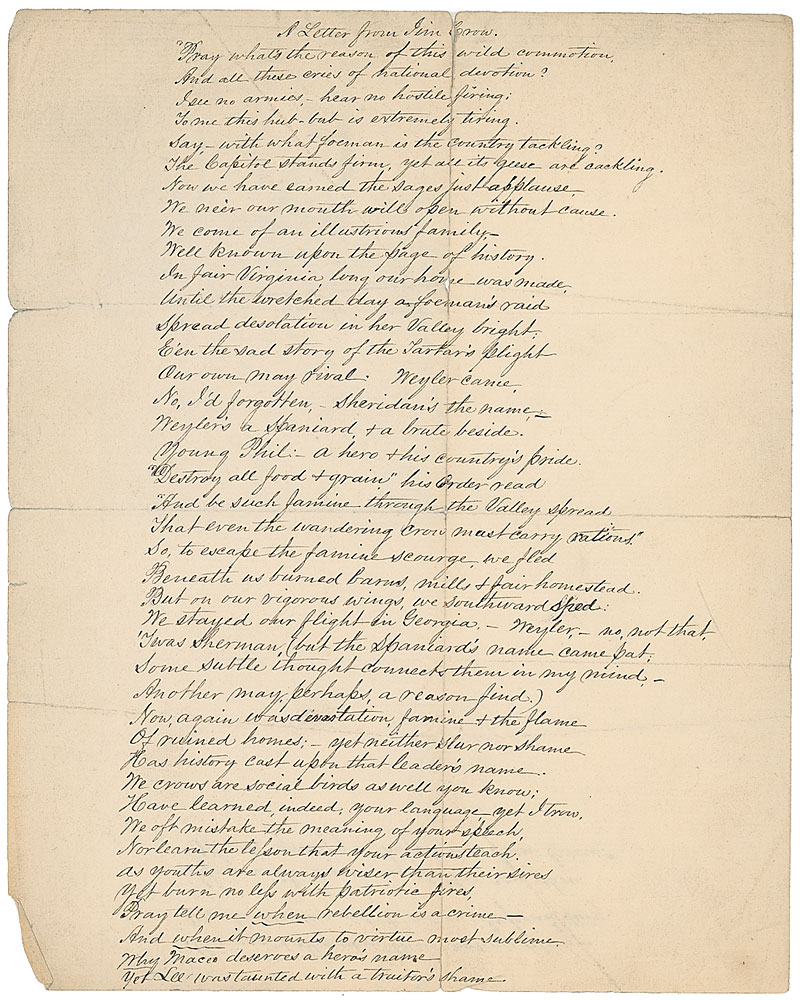 A Letter from Jim Crow.
"Pray what's the reason of this wild commotion,
And all these cries of national devotion?
I see no armies, - hear no hostile firing;
To me this hub-bub is extremely tiring.
Say, - with what foeman is the country tackling?
The Capitol stands firm, yet all its geese are cackling.
Now we have earned the sages just applause
We ne'er our mouth will open without cause.
We come of an illustrious family, -
Well known upon the page of history.
In fair Virginia, long our home was made,
Until the wretched day a foeman's raid
Spread desolation in her Valley bright;
E'en the sad story of the Tartar's flight
Our own may rival. Weyler came,
No, I'd forgotten, - Sheridan's the name, -
Weyler's a Spaniard, & a brute beside.
Young Phil: - a hero & his country's pride.
"Destroy all food & grain," his order read
"And be such famine through the Valley spread
That even the wandering crow must carry rations."
So, to escape the famine scourge, we fled
Beneath us burned barns, mills & fair homestead.
But on our vigorous wings, we southward sped:
We stayed our flight in Georgia, - Weyler, - no, not that,
'Twas Sherman, (but the Spaniard's name came pat;
Some subtle thought connects them in my mind, -
Another may, perhaps, a reason find.)
Now, again was devastation, famine & the flame
Of ruined homes; - yet neither slur nor shame
Has history cast upon that leader's name.
We crows are social birds as well you know;
Have learned, indeed, your language, yet I trow,
We oft mistake the meaning of your speech,
Nor learn the lesson that your actions teach.
As youths are always wiser than their sires
Yet burn no less with patriotic fires,
Pray tell me when rebellion is a crime -
And when it mounts to virtue most sublime.
Why Maceo deserves a hero's name
Yet Lee was taunted with a traitor's shame.